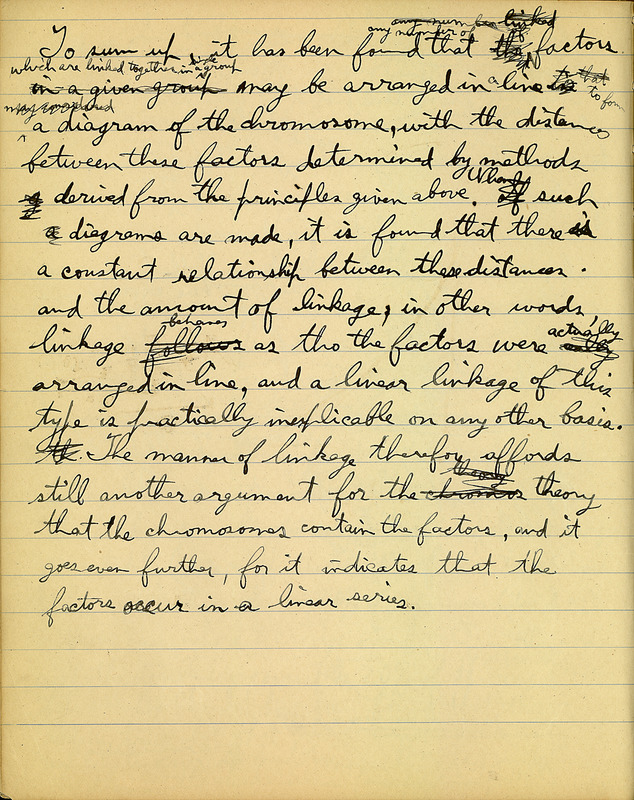 any number linked
any number of
To sum up, it has been found that the factors
which are linked together in a group
in a given group may be arranged in a line to form
a diagram of the chromosome, with the distances
between these factors determined by methods
When
derived from the principles given above. If such
a diagrams are made, it is found that there is
a constant relationship between these distances
and the amount of linkage; in other words,
behaves actually
linkage follows as tho the factors were
arranged in line, and a linear linkage of this
type is practically inexplicable on any other basis.
The manner of linkage therefor affords
theory
still another argument for the chromos theory
that the chromosomes contain the factors, and it
goes even further, for it indicates that the
factors occur in a linear series.